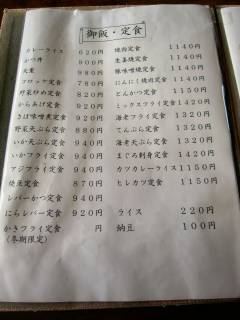 御飯・定食
カレーライス 620円
かつ丼 900円
天重 880円
コロッケ定食 780円
野菜炒め定食 880円
からあげ定食 920円
さば味噌煮定食 920円
野菜天ぷら定食 880円
いか天ぷら定食 940円
いかフライ定食 940円
アジフライ定食 940円
焼魚定食 870円
レバーかつ定食 940円
にらレバー定食 920円
かきフライ定食 円
(冬期限定)
焼肉定食 1140円
生姜焼定食 1140円
豚味噌焼定食 1140円
にんにく焼肉定食 1140円
とんかつ定食 1150円
ミックスフライ定食 1240円
海老フライ定食 1240円
てんぷら定食 1240円
海老天ぷら定食 1240円
まぐろ刺身定食 1240円
カツカレーライス 1150円
ヒレカツ定食 1150円
ライス 220円
納豆 100円